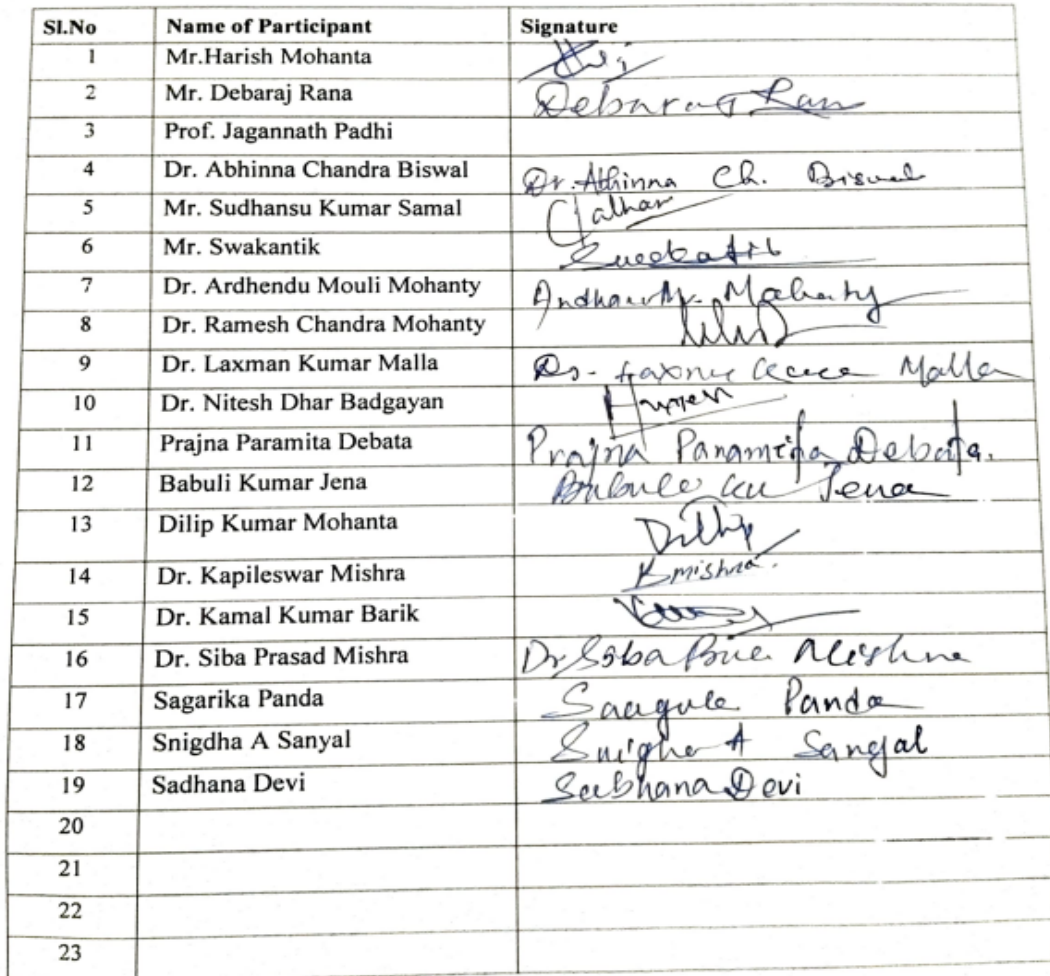 Sl.No Name of Participant Signature
1 Mr.Harish Mohanta
2 Mr. Debaraj Rana
3 Prof. Jagannath Padhi
4 Dr. Abhinna Chandra Biswal Dr. Abhinna Ch. Biswal
5 Mr. Sudhansu Kumar Samal
6 Mr. Swakantik
7 Dr. Ardhendu Mouli Mohanty
8 Dr. Ramesh Chandra Mohanty
9 Dr. Laxman Kumar Malla Malla
10 Dr. Nitesh Dhar Badgayan
11 Prajna Paramita Debata Prajna Paramita Debata.
12 Babuli Kumar Jena Jena
13 Dilip Kumar Mohanta
14 Dr. Kapileswar Mishra Kmishra.
15 Dr. Kamal Kumar Barik
16 Dr. Siba Prasad Mishra Dr Siba Mishra
17 Sagarika Panda Panda
18 Snigdha A Sanyal A Sanyal
19 Sadhana Devi Devi
20
21
22
23